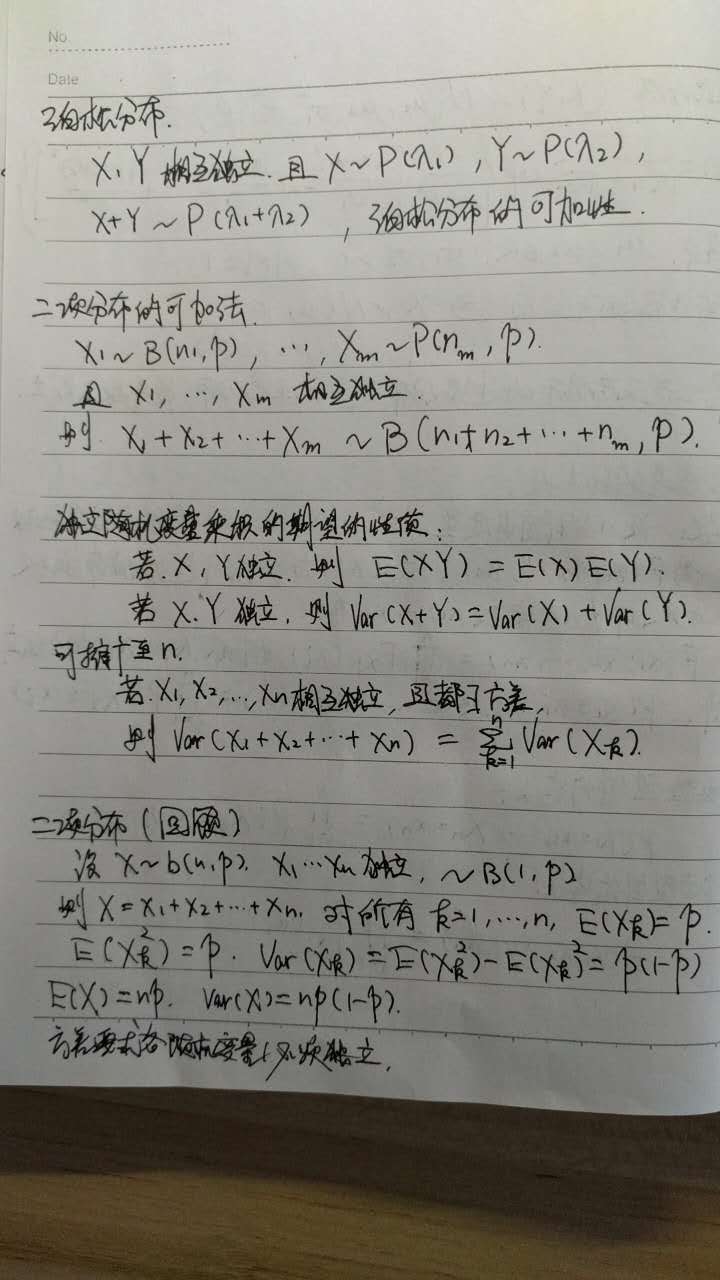 No.
Date
泊松分布.
X, Y 相互独立. 且 X~P(λ₁), Y~P(λ₂),
X+Y ~ P(λ₁+λ₂) , 泊松分布的可加性.
二项分布的可加法.
X₁~B(n₁,p), …, Xₘ~P(nₘ, p).
且 X₁, …, Xₘ 相互独立.
则 X₁+X₂+…+Xₘ ~ B(n₁+n₂+…+nₘ, p).
独立随机变量乘积的期望的性质:
若 X, Y 独立. 则 E(XY) = E(X)E(Y).
若 X. Y 独立, 则 Var(X+Y)=Var(X)+Var(Y).
可推广至n.
若 X₁, X₂, …, Xₙ 相互独立, 且都 方差,
则 Var(X₁+X₂+…+Xₙ) = ∑ₖ₌₁ⁿ Var(Xₖ).
二项分布(回顾)
设 X~b(n,p). X₁…Xₙ 独立, ~B(1,p)
则 X=X₁+X₂+…+Xₙ. 对所有 k=1,…,n, E(Xₖ)=p.
E(Xₖ²)=p. Var(Xₖ)=E(Xₖ²)-E(Xₖ)²=p(1-p)
E(X)=np. Var(X)=np(1-p).
方差要求各随机变量必须独立.